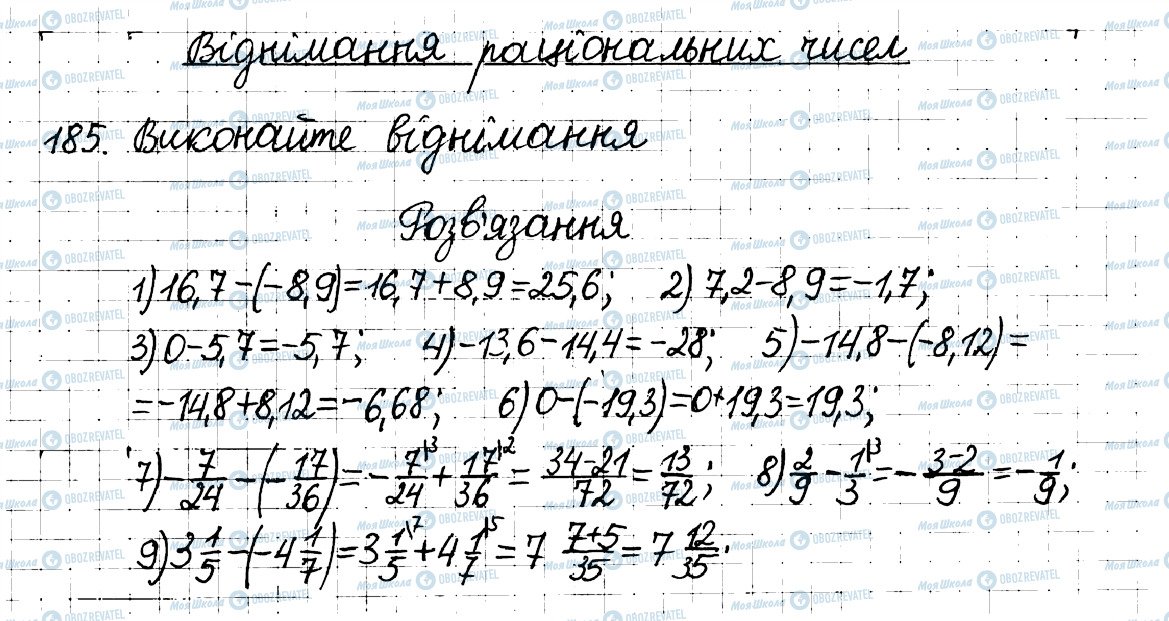 Віднімання раціональних чисел
185. Виконайте віднімання
Розв'язання
1) 16,7-(-8,9)=16,7+8,9=25,6; 2) 7,2-8,9=-1,7;
3) 0-5,7=-5,7; 4) -13,6-14,4=-28; 5) -14,8-(-8,12)=
=-14,8+8,12=-6,68; 6) 0-(-19,3)=0+19,3=19,3;
7) -7/24-(-17/36)=-7/24\3+17/36\2=(34-21)/72=13/72; 8) 2/9-1/3\3=-(3-2)/9=-1/9;
9) 3 1/5-(-4 1/7)=3 1/5\7+4 1/7\5=7 (7+5)/35=7 12/35.
МояШкола OBOZREVATEL